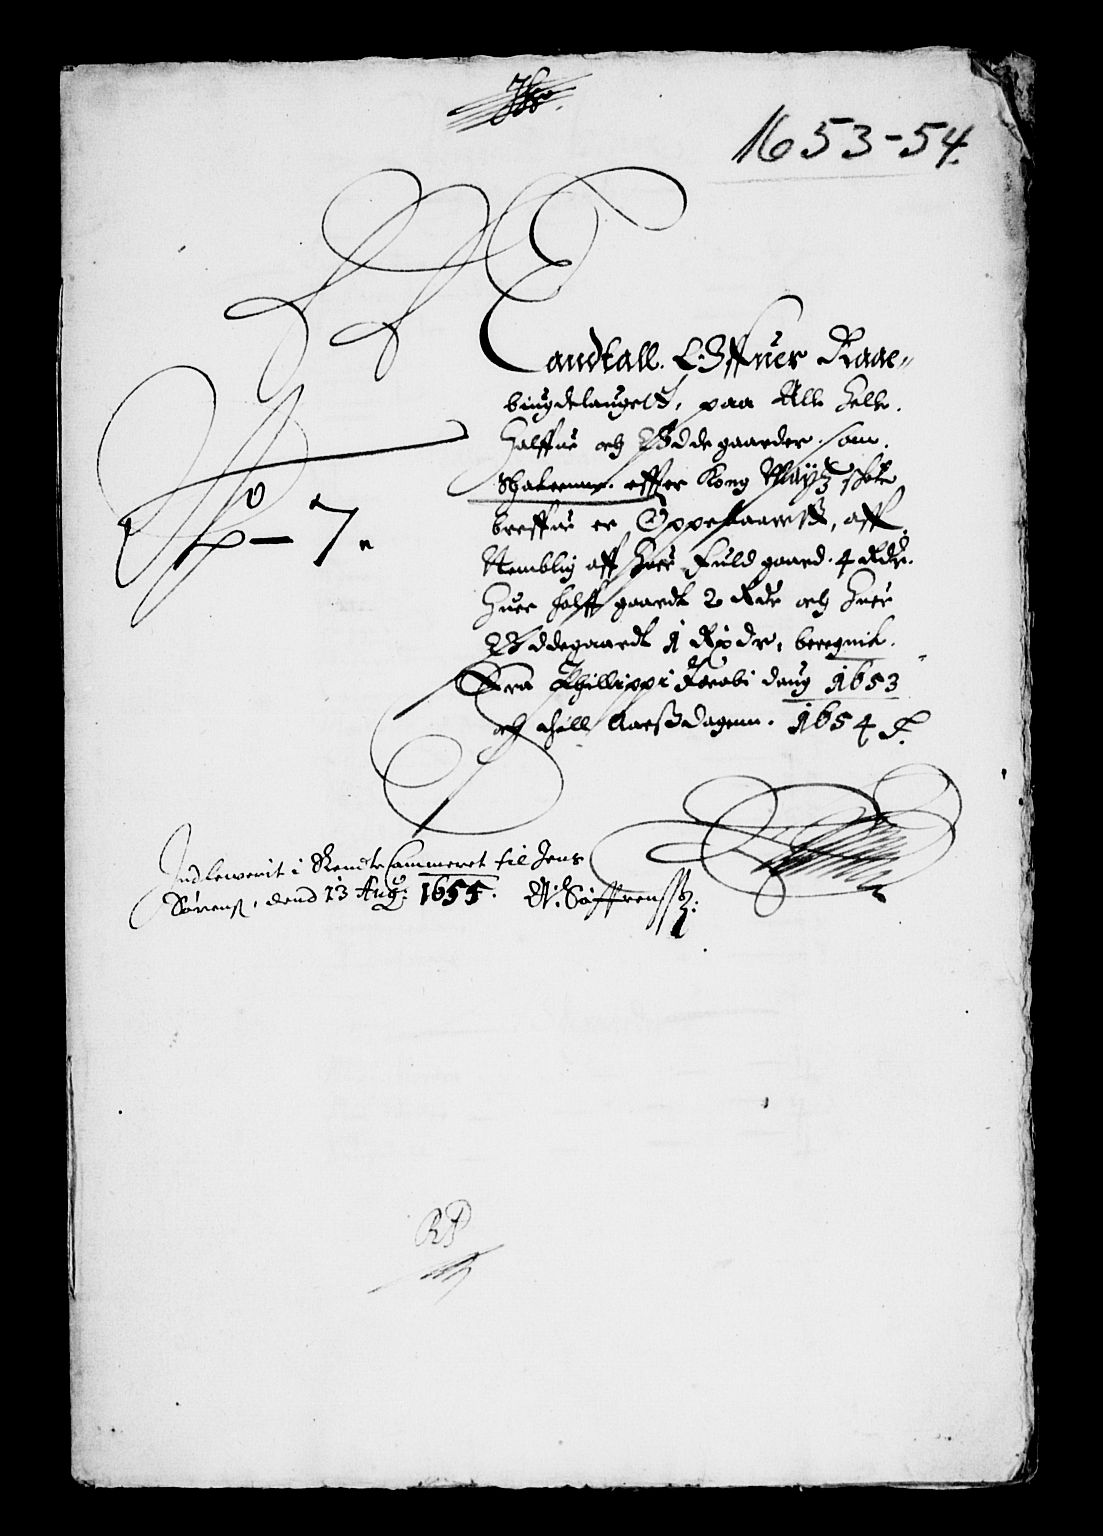 1653-54.
Mandtall. Offuer Raae-
bingdelauget, paa Alle Helle.
Halffue och Ødde gaarder. som.
Skatterne. effter Kong Mayz skatte
breffue er Oppebaarett, aff
Nemblig aff huer Fuld gaard. 4 Rdr.
Huer halff gaardt 2 Rdr och huer
Øddegaardt 1 Rixdr, beregnit.
Fra Phillippi Jacobi daug 1653
och thill Aarssdagenn. 1654
No - 7.
Indlewerit i Rendte Cammeret til Jens
Sørenss, dend 13 Aug: 1655. Søffrenss:
RP